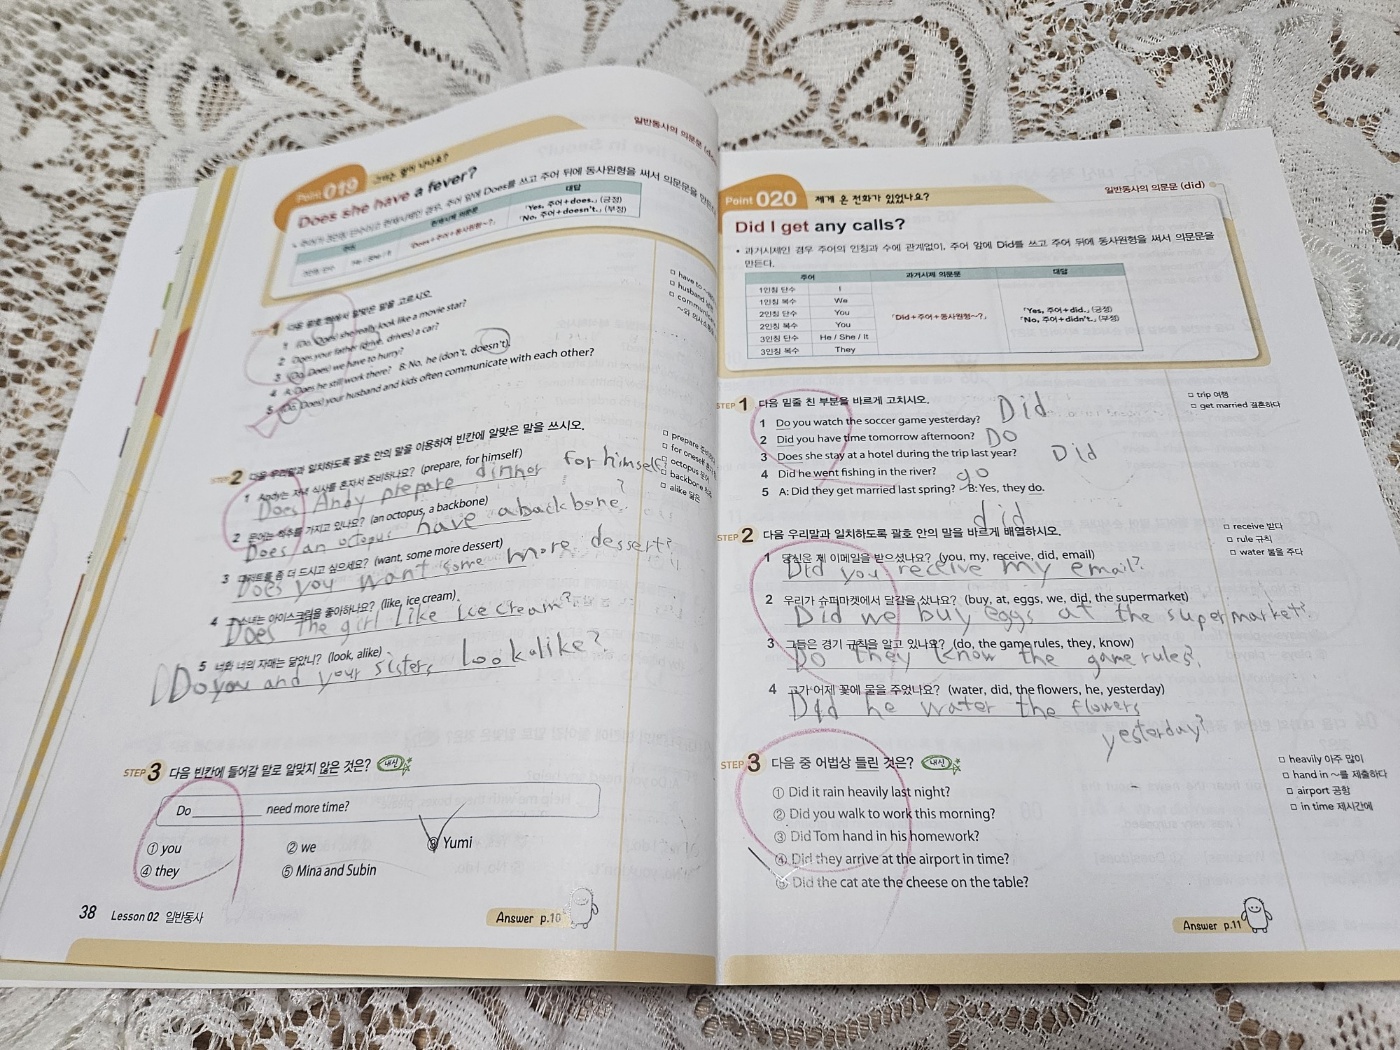 일반동사의 의문문
Point 019
Does she have a fever?
주어
대답
「Does+주어+동사원형~?」
「Yes, 주어+does.」 (긍정)
「No, 주어+doesn't.」 (부정)
He / She / It
1 다음 괄호 안에서 알맞은 말을 고르시오.
1 (Do, Does) she really look like a movie star?
2 Does your father (drive, drives) a car?
3 (Do, Does) we have to hurry?
4 A: Does he still work there? B: No, he (don't, doesn't).
5 (Do, Does) your husband and kids often communicate with each other?
have to
husband
communicate
STEP 2 다음 우리말과 일치하도록 괄호 안의 말을 이용하여 빈칸에 알맞은 말을 쓰시오.
1 Andy는 저녁 식사를 혼자서 준비하나요? (prepare, for himself)
Does Andy prepare dinner for himself?
2 문어는 척추를 가지고 있나요? (an octopus, a backbone)
Does an octopus have a backbone?
3 디저트를 좀 더 드시고 싶으세요? (want, some more dessert)
Does you want some more dessert?
4 그 소녀는 아이스크림을 좋아하나요? (like, ice cream)
Does the girl like Ice cream?
5 너와 너의 자매는 닮았니? (look, alike)
Do you and your sisters look alike?
prepare
for oneself
octopus 문어
backbone
alike 닮은
STEP 3 다음 빈칸에 들어갈 말로 알맞지 않은 것은? 내신
Do ________ need more time?
① you
② we
③ Yumi
④ they
⑤ Mina and Subin
38 Lesson 02 일반동사
Answer p.10
Point 020 제게 온 전화가 있었나요?
일반동사의 의문문 (did)
Did I get any calls?
• 과거시제인 경우 주어의 인칭과 수에 관계없이, 주어 앞에 Did를 쓰고 주어 뒤에 동사원형을 써서 의문문을
만든다.
주어 과거시제 의문문 대답
1인칭 단수 I
1인칭 복수 We
2인칭 단수 You
2인칭 복수 You
3인칭 단수 He / She / It
3인칭 복수 They
「Did+주어+동사원형~?」
「Yes, 주어+did.」 (긍정)
「No, 주어+didn't.」 (부정)
STEP 1 다음 밑줄 친 부분을 바르게 고치시오.
1 Do you watch the soccer game yesterday? Did
2 Did you have time tomorrow afternoon? Do
3 Does she stay at a hotel during the trip last year? Did
4 Did he went fishing in the river? go
5 A: Did they get married last spring? B: Yes, they do.
did
trip 여행
get married 결혼하다
STEP 2 다음 우리말과 일치하도록 괄호 안의 말을 바르게 배열하시오.
1 당신은 제 이메일을 받으셨나요? (you, my, receive, did, email)
Did you receive my email?
2 우리가 슈퍼마켓에서 달걀을 샀나요? (buy, at, eggs, we, did, the supermarket)
Did we buy eggs at the supermarket?
3 그들은 경기 규칙을 알고 있나요? (do, the game rules, they, know)
Do they know the game rules?
4 그가 어제 꽃에 물을 주었나요? (water, did, the flowers, he, yesterday)
Did he water the flowers
yesterday?
receive 받다
rule 규칙
water 물을 주다
STEP 3 다음 중 어법상 틀린 것은? 내신
① Did it rain heavily last night?
② Did you walk to work this morning?
③ Did Tom hand in his homework?
④ Did they arrive at the airport in time?
⑤ Did the cat ate the cheese on the table?
heavily 아주 많이
hand in ~를 제출하다
airport 공항
in time 제시간에
Answer p.11